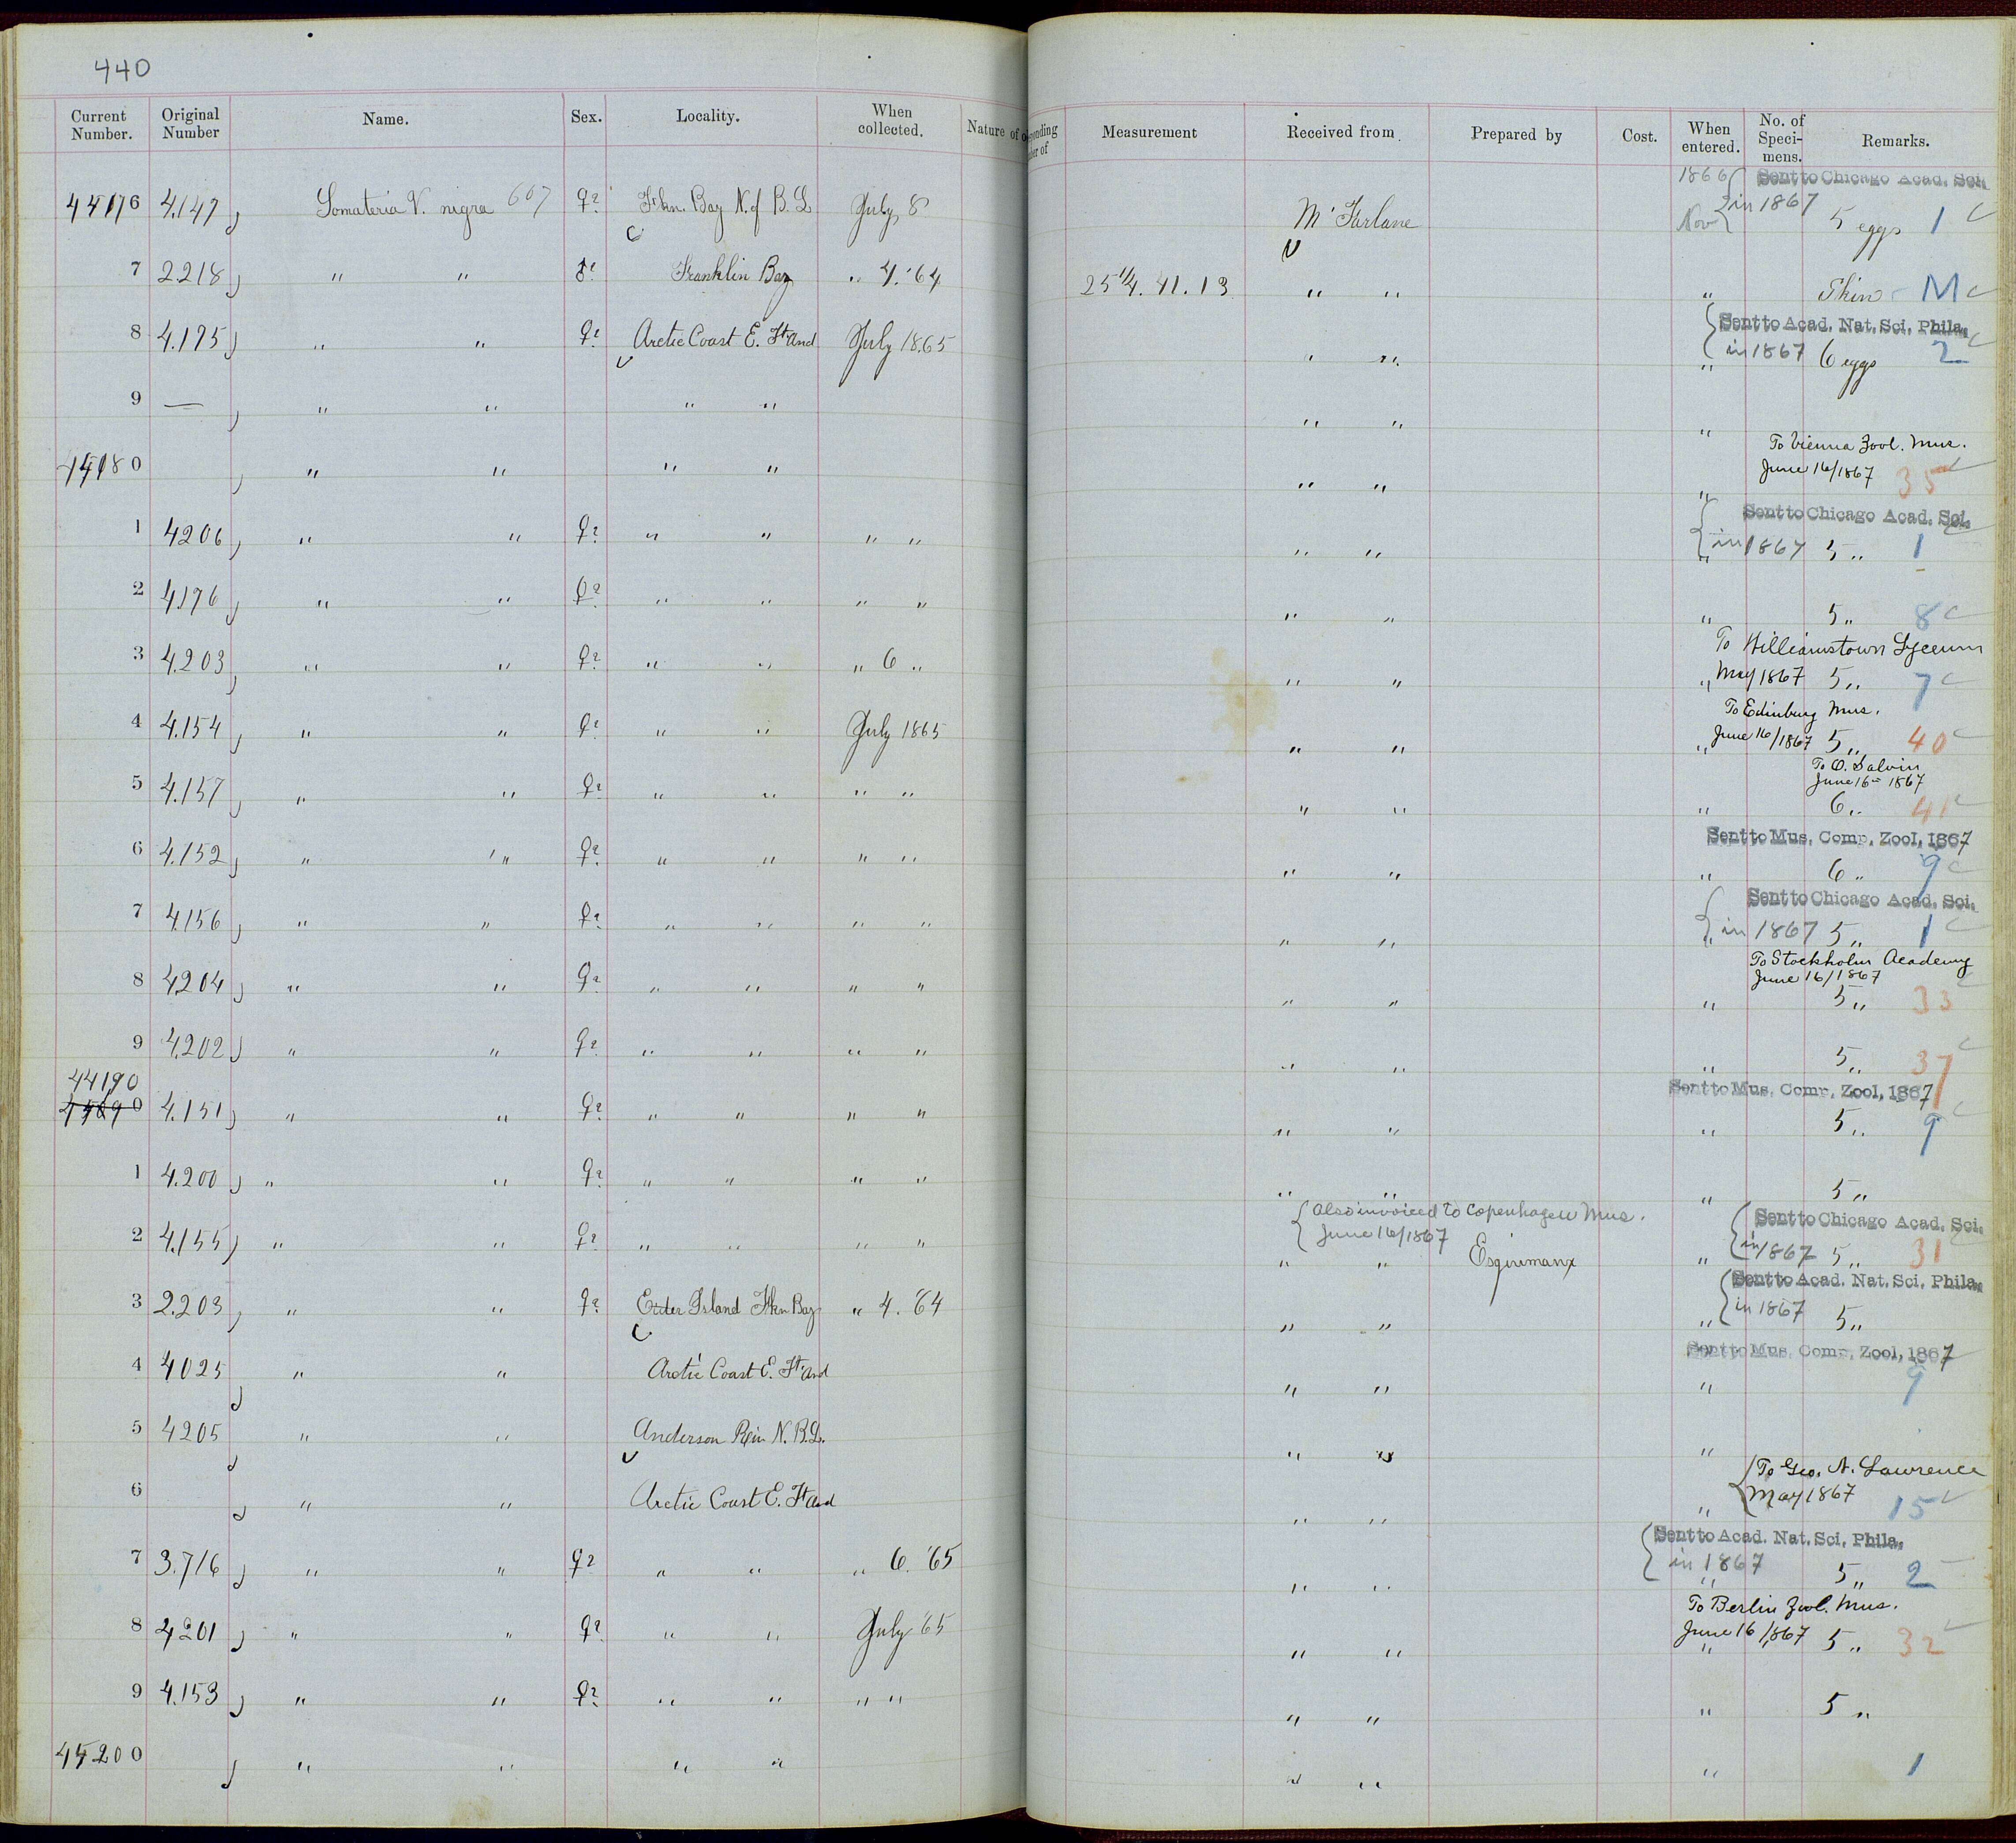 440
Current Number. Original Number Name. Sex. Locality. When collected. Nature of Measurement Received from Prepared by Cost. When entered. No. of Speci- mens. Remarks.
1866 Sent to Chicago Acad. Sci.
44176 4.147 Somateria V. nigra 607 ♀? Fkn. Bay N. of B. L July 8 McFarlane Nov in 1867 5 eggs 1
7 2218 " " Franklin Bay " 4. '64 25 1/4. 41. 13 " " " Skin M
Sent to Acad. Nat. Sci. Phila.
8 4.175 " " ♀? Arctic Coast E. Ft And July 1865 " " " in 1867 6 eggs 2
9 — " " " " " " "
To Vienna Zool. Mus.
44180 " " " " " " " June 16/1867 35
Sent to Chicago Acad. Sci.
1 4206 " " ♀? " " " " " " " in 1867 5 " 1
2 4176 " " ♀? " " " " " " " 5 " 8
To Williamstown Lyceum
3 4.203 " " ♀? " " " 6 " " " " May 1867 5 " 7
To Edinburg Mus.
4 4.154 " " ♀? " " July 1865 " " " June 16/1867 5 " 40
To O. Salvin
June 16 - 1867
5 4.157 " " ♀? " " " " " " " 6 " 41
Sent to Mus. Comp. Zool, 1867
6 4.152 " " ♀? " " " " " " " 6 " 9
Sent to Chicago Acad. Sci.
7 4.156 " " ♀? " " " " " " " in 1867 5 " 1
To Stockholm Academy
June 16/1867
8 4204 " " ♀? " " " " " " " 5 " 33
9 4.202 " " ♀? " " " " " " " 5 " 37
44190 Sent to Mus. Comp. Zool, 1867
0 4.151 " " ♀? " " " " " " " 5 " 9
1 4.200 " " ♀? " " " " " " " 5 "
Also invoiced to Copenhagen Mus. Sent to Chicago Acad. Sci.
June 16/1867
2 4.155 " " ♀? " " " " " " Esquimaux " in 1867 5 " 31
Sent to Acad. Nat. Sci. Phila.
3 2.203 " " ♀? Eider Island Fkn Bay " 4. '64 " " " in 1867 5 "
Sent to Mus. Comp. Zool, 1867
4 4025 " " Arctic Coast E. Ft And " " " 9
5 4205 " " Anderson Riv N. B.L. " " "
To Geo. N. Lawrence
6 " " Arctic Coast E. Ft And " " " May 1867 15
Sent to Acad. Nat. Sci. Phila.
7 3.716 " " ♀? " " " 6. '65 " " " in 1867 5 " 2
To Berlin Zool. Mus.
8 4201 " " ♀? " " July '65 " " " June 16/1867 5 " 32
9 4.153 " " ♀? " " " " " " " 5 "
44200 " " " " " " " 1